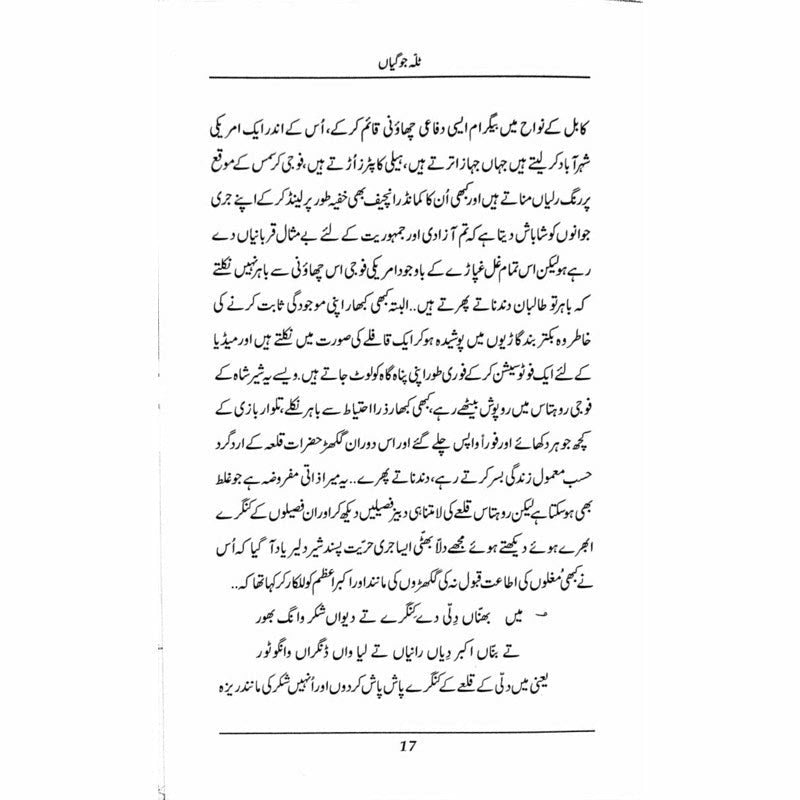 ٹلّہ جوگیاں
کابل کے نواح میں بیگرام ایسی دفاعی چھاؤنی قائم کر کے، اُس کے اندر ایک امریکی
شہر آباد کر لیتے ہیں جہاں جہاز اترتے ہیں، ہیلی کاپٹرز اُڑتے ہیں، فوجی کرسمس کے موقع
پر رنگ رلیاں مناتے ہیں اور کبھی اُن کا کمانڈر انچیف بھی خفیہ طور پر لینڈ کر کے اپنے جری
جوانوں کو شاباش دیتا ہے کہ تم آزادی اور جمہوریت کے لئے بے مثال قربانیاں دے
رہے ہو لیکن اس تمام غل غپاڑے کے باوجود امریکی فوجی اس چھاؤنی سے باہر نہیں نکلتے
کہ باہر تو طالبان دندناتے پھرتے ہیں.. البتہ کبھی کبھار اپنی موجودگی ثابت کرنے کی
خاطر وہ بکتر بند گاڑیوں میں پوشیدہ ہو کر ایک قافلے کی صورت میں نکلتے ہیں اور میڈیا
کے لئے ایک فوٹو سیشن کر کے فوری طور اپنی پناہ گاہ کو لوٹ جاتے ہیں. ویسے یہ شیر شاہ کے
فوجی روہتاس میں روپوش بیٹھے رہے، کبھی کبھار ذرا احتیاط سے باہر نکلے، تلوار بازی کے
کچھ جوہر دکھائے اور فوراً واپس چلے گئے اور اس دوران گکھڑ حضرات قلعہ کے اردگرد
حسب معمول زندگی بسر کرتے رہے، دندناتے پھرے... یہ میرا ذاتی مفروضہ ہے جو غلط
بھی ہو سکتا ہے لیکن روہتاس قلعے کی لامتناہی دبیز فصیلیں دیکھ کر اور ان فصیلوں کے کنگرے
ابھرے ہوئے دیکھتے ہوئے مجھے دلاّ بھٹّی ایسا جری حرّیت پسند شیر دلیر یاد آ گیا کہ اُس
نے کبھی مُغلوں کی اطاعت قبول نہ کی گکھڑوں کی مانند اور اکبر اعظم کو للکار کر کہا تھا کہ..
؎ میں بھنّاں دِلّی دے کِنگرے تے دیواں شکر وانگ بھور
تے بنّاں اکبر دِیاں رانیاں تے لیا واں ڈنگراں وانگو ٹور
یعنی میں دلّی کے قلعے کے کنگرے پاش پاش کر دوں اور اُنہیں شکر کی مانند ریزہ
17